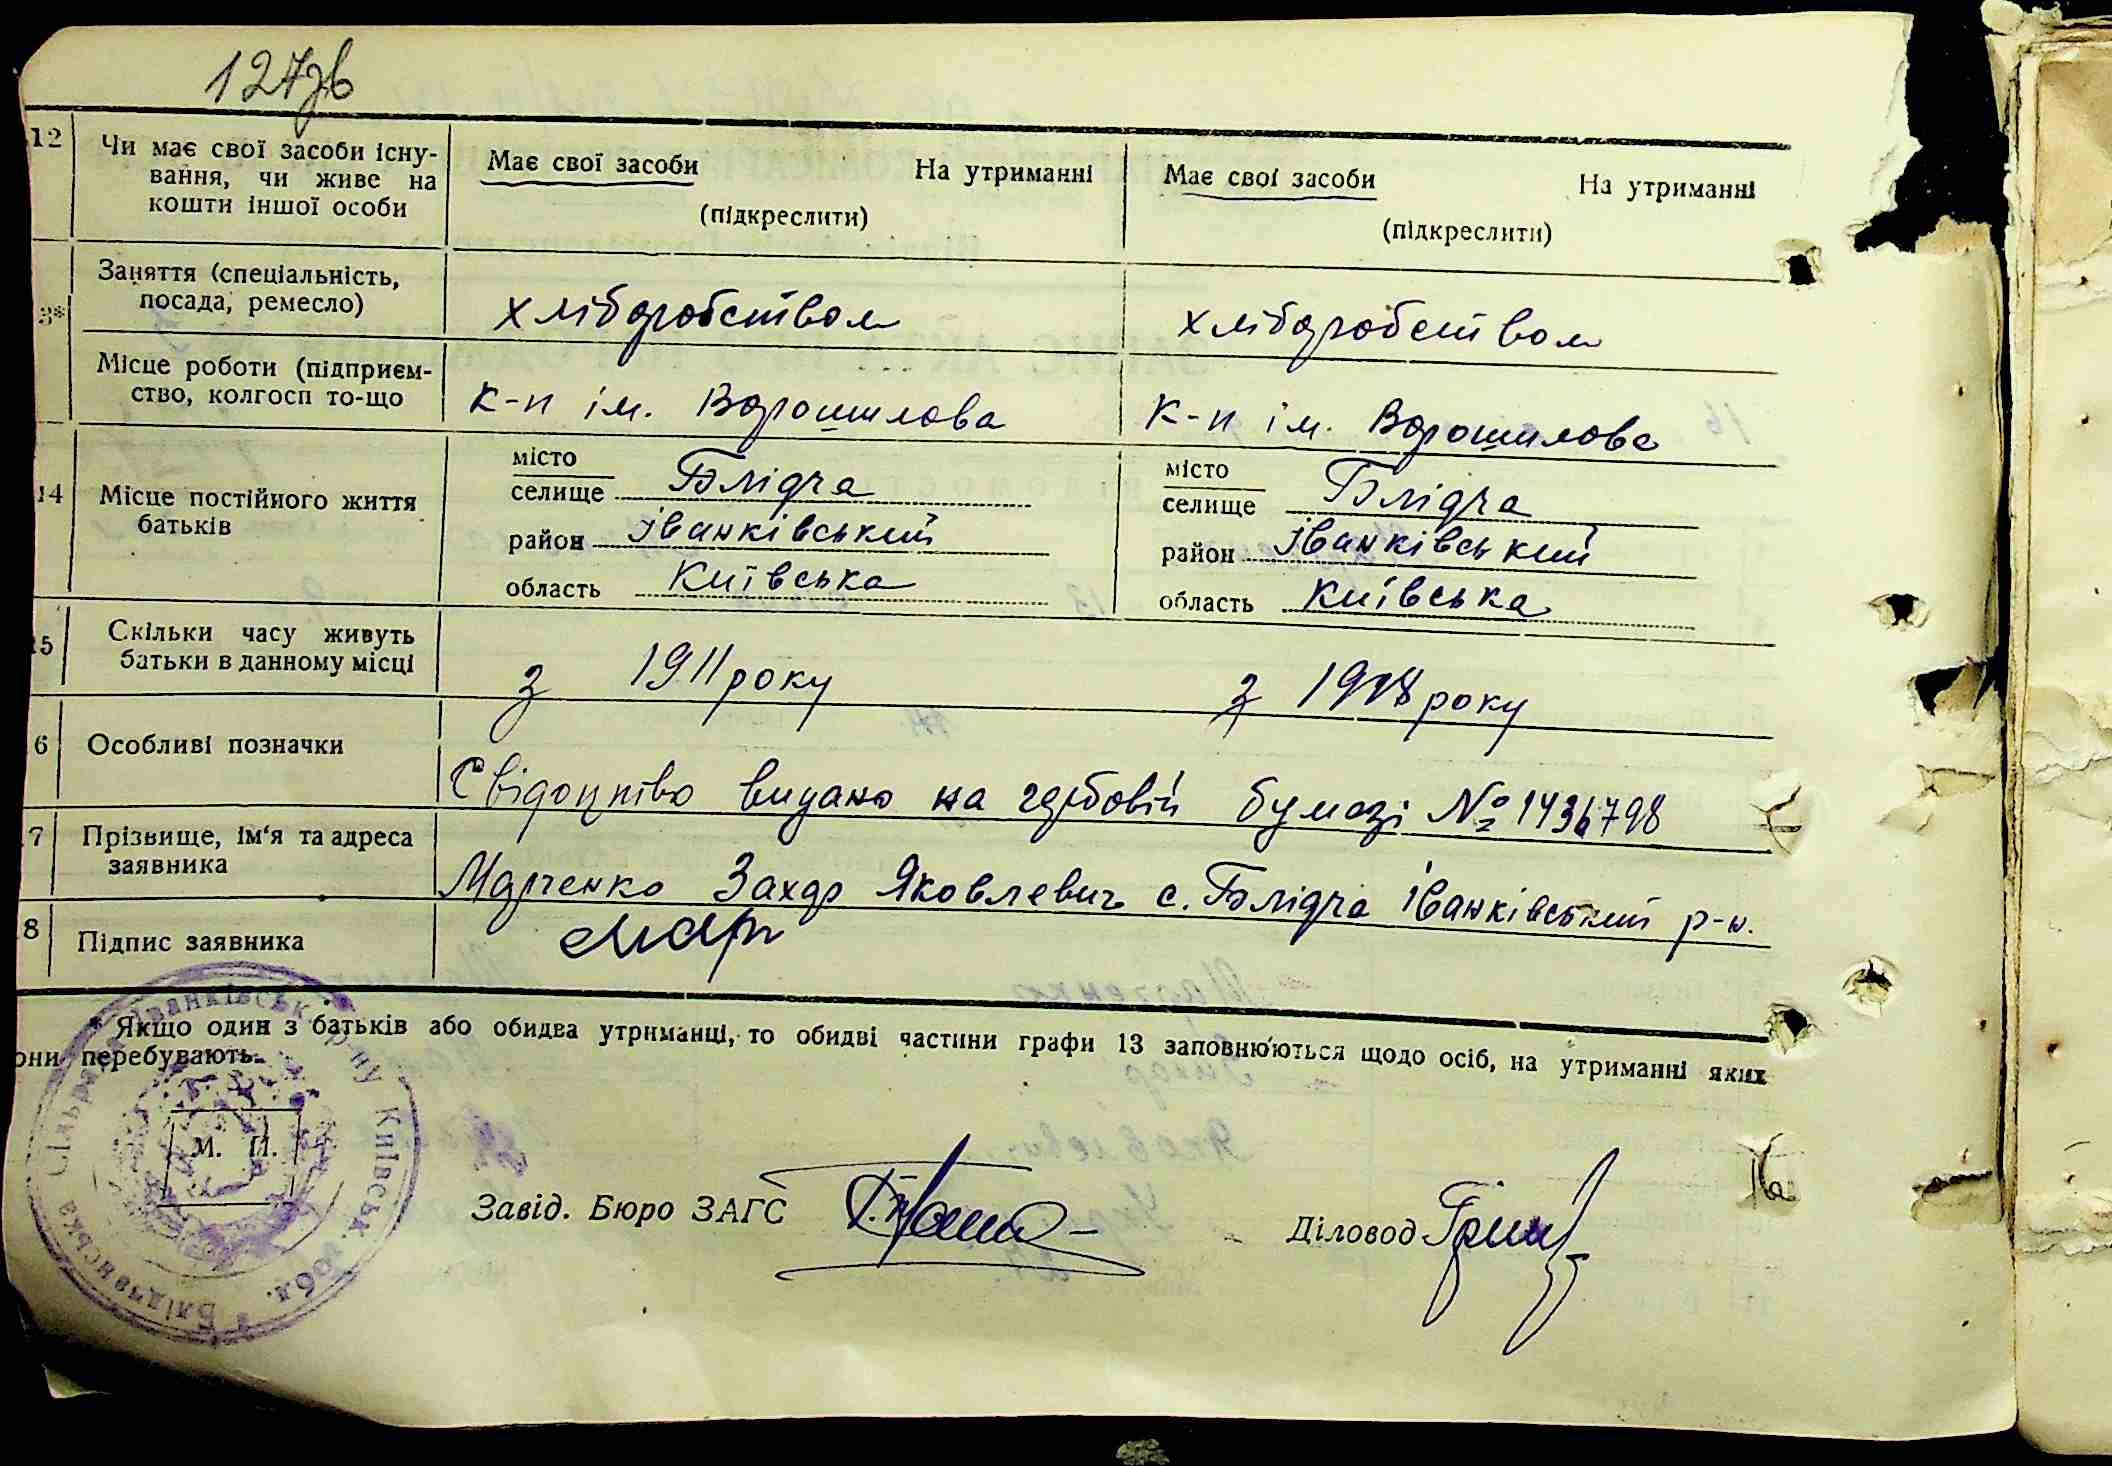 127зв
12 Чи має свої засоби існу-
вання, чи живе на
кошти іншої особи
Має свої засоби На утриманні
(підкреслити)
Має свої засоби На утриманні
(підкреслити)
3* Заняття (спеціальність,
посада, ремесло)
хліборобством
хліборобством
Місце роботи (підприєм-
ство, колгосп то-що
к-п ім. Ворошилова
к-п ім. Ворошилова
14 Місце постійного життя
батьків
місто
селище Блідча
район Іванківський
область Київська
місто
селище Блідча
район Іванківський
область Київська
15 Скільки часу живуть
батьки в данному місці
з 1911 року
з 1918 року
6 Особливі позначки
Свідоцтво видано на гербовій бумазі № 1436798
7 Прізвище, ім'я та адреса
заявника
Марченко Захар Яковлевич с. Блідча Іванківський р-н.
8 Підпис заявника
Мар
* Якщо один з батьків або обидва утриманці, то обидві частини графи 13 заповнюються щодо осіб, на утриманні яких
они перебувають.
М. П.
Блідчанська Сільрада Іванківськ. р-ну Київськ. обл.
Завід. Бюро ЗАГС
Діловод